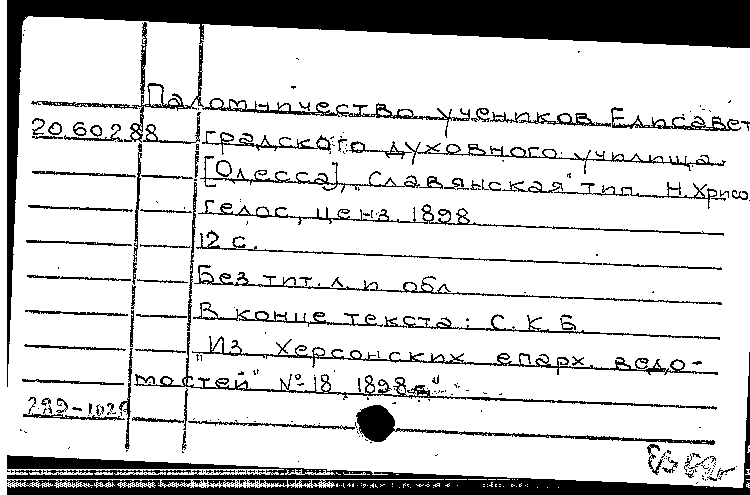 Паломничество учеников Елисавет
20.60288 градского духовного училища.
[Одесса], "Славянская" тип. Н. Хрисо
гелос, ценз. 1898.
12 с.
Без тит. л. и обл.
В конце текста: С. К. Б.
"Из Херсонских епарх. ведо-
мостей" № 18, 1898 г."